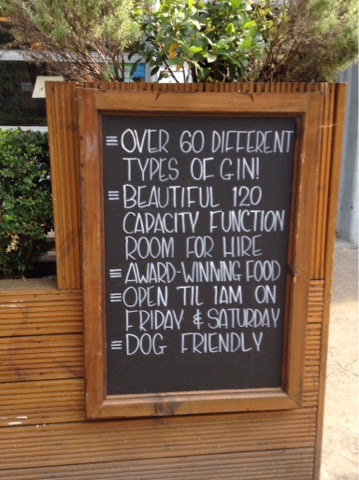 ≡ OVER 60 DIFFERENT
TYPES OF GIN!
≡ BEAUTIFUL 120
CAPACITY FUNCTION
ROOM FOR HIRE
≡ AWARD-WINNING FOOD
≡ OPEN 'TIL 1AM ON
FRIDAY & SATURDAY
≡ DOG FRIENDLY